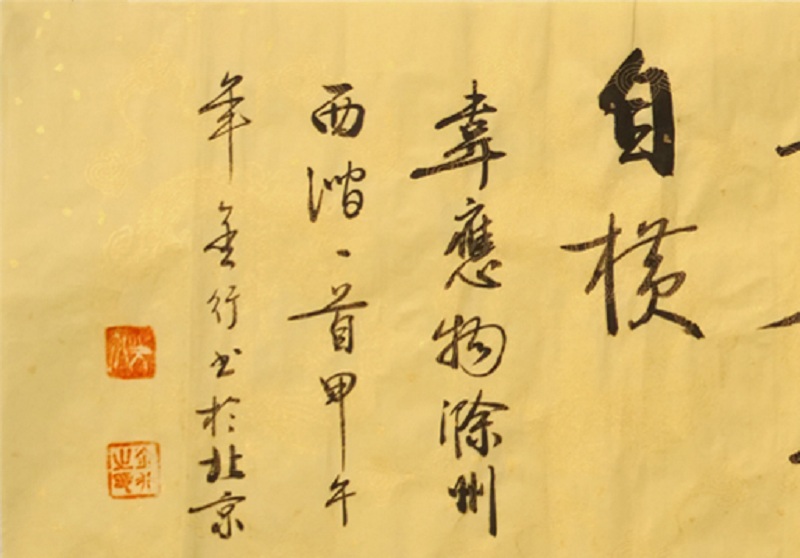 自横
韋應物滁州
西澗一首甲午
年金行书於北京